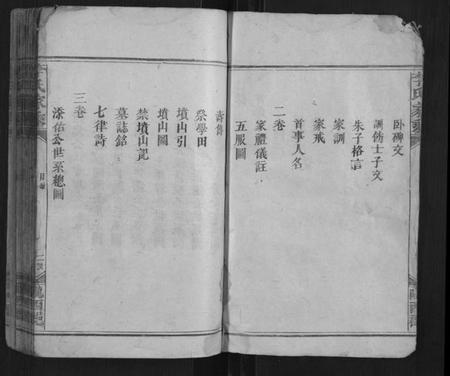 卧碑文
訓飭士子文
朱子格言
家訓
家戒
首事人名
二卷
家禮儀註
五服圖
壽儁
祭學田
墳山引
墳山圖
禁墳山記
墓誌銘
七律詩
三卷
添佑公世系總圖
目錄